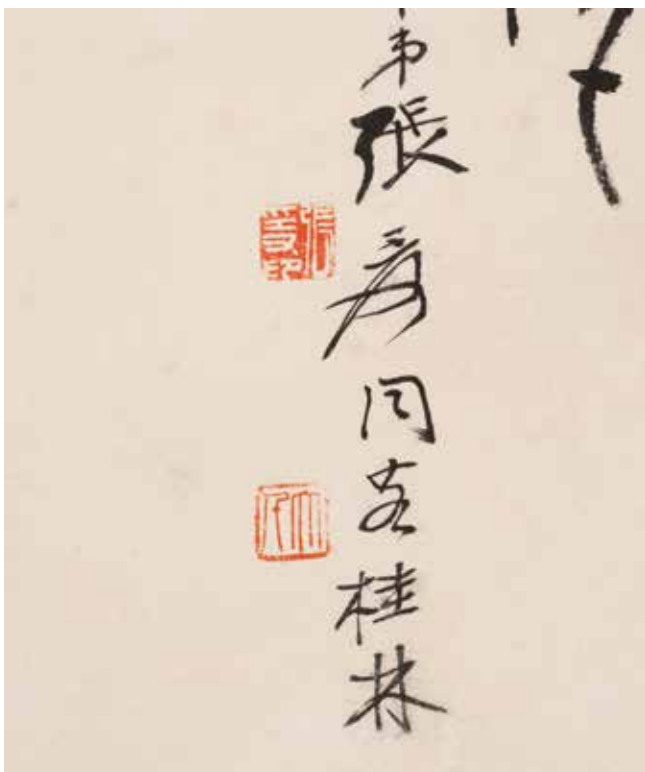 弟張爰同客桂林
張爰印
大千